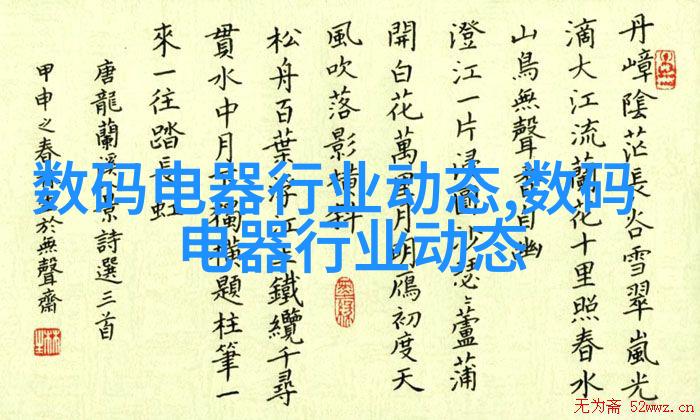 数码电器行业动态,数码
电器行业动态
丹嶂陰茫茫長谷雪翠嵐光
滴大江流蘭花十里照春水
山鳥無聲
澄江一片
瑟瑟蘆蒲
開白花萬
月明鴈初度天
風吹落影橫斜
松舟百葉
鐵纜千尋
貫水中月
獨橫題柱筆一
來一往踏長虹
唐龍蘭溪
詩選三首
甲申之春
於無聲齋
无为斋 52wwz.cn